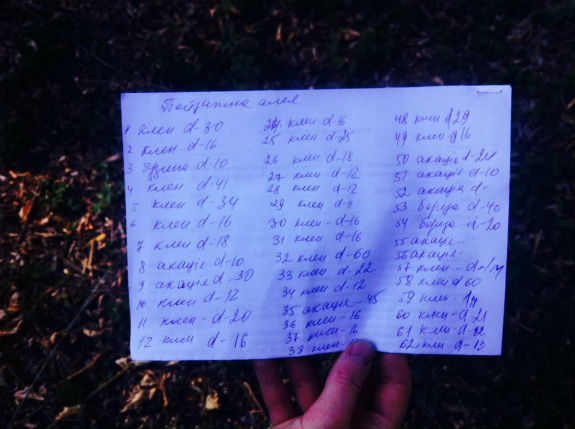 Пейзажна алея
1 клен d-30
2 клен d-16
3 d-10
4 клен d-41
5 клен d-34
6 клен d-16
7 клен d-18
8 акація d-10
9 акація d-30
10 клен d-12
11 клен - d-20
12 клен d-16
24 клен d-16
25 клен d-25
26 клен d-18
27 клен d-12
28 клен d-12
29 клен d-11
30 клен - d-16
31 клен d-16
32 клен d-60
33 клен d-22
34 клен d-12
35 акація - 45
36 клен - 16
37 клен - 12
38 клен -
48 клен d29
49 клен d16
50 акація d-24
51 акація d-10
52 акація d-
53 береза d-40
54 береза d-20
55 акація -
56 акація -
57 клен - d-
58 клен d60
59 клен -
60 клен - d 21
61 клен - d-12
62 клен d-13